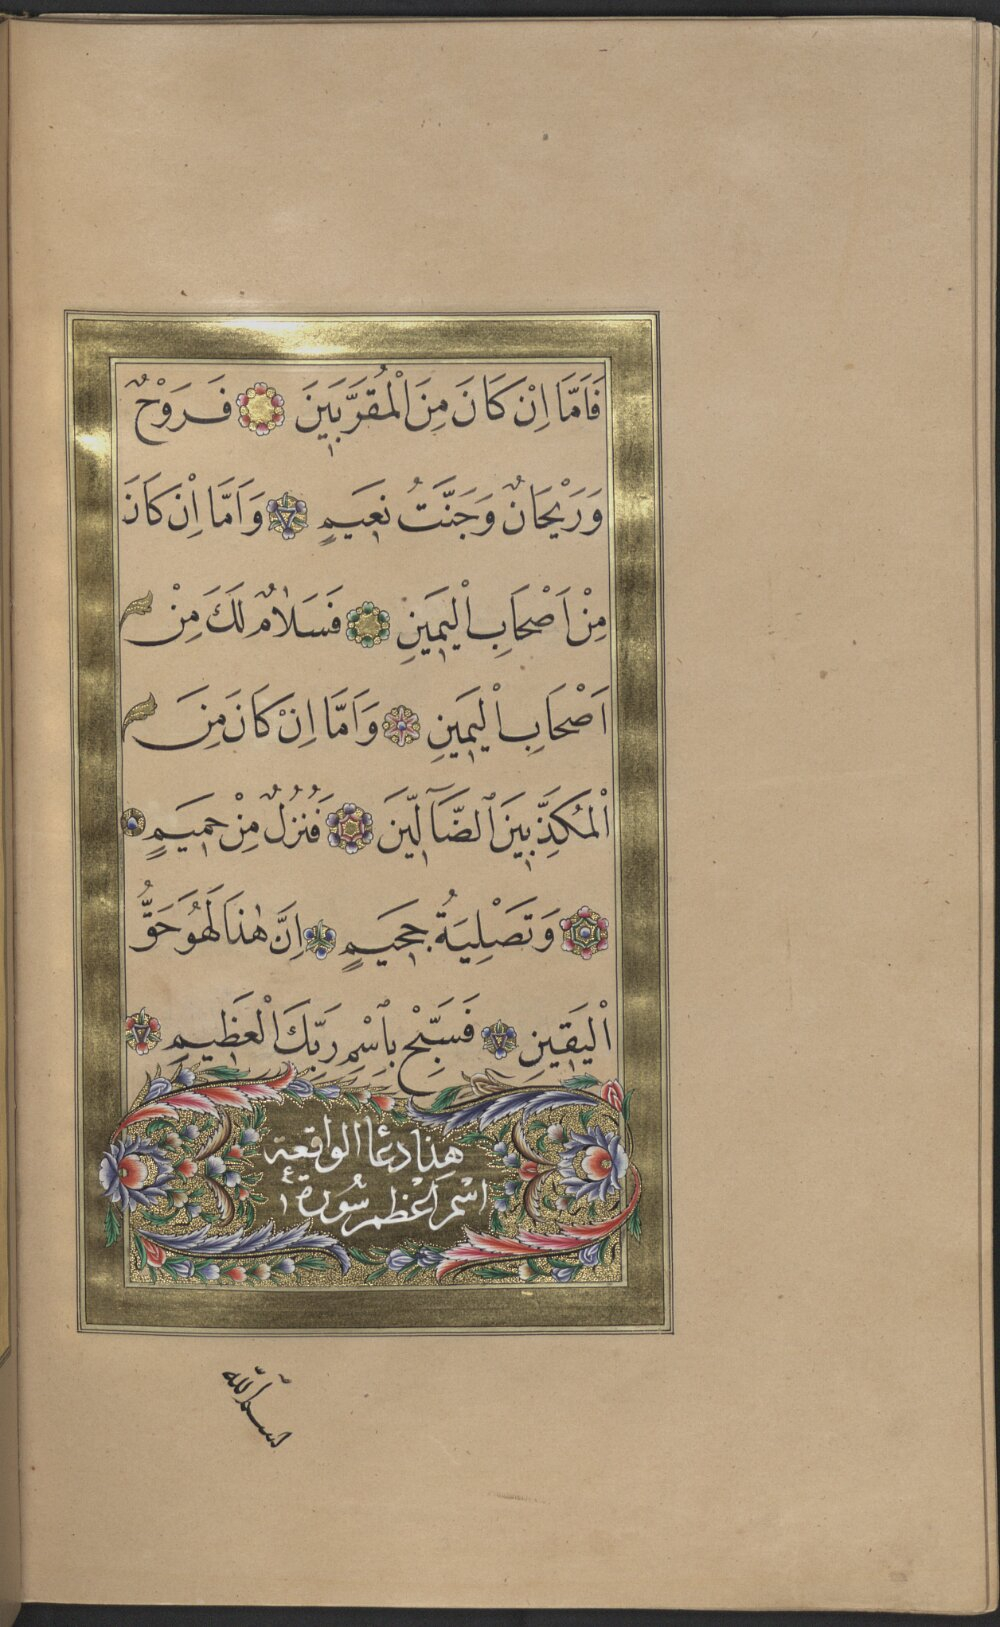 فَاَمَّا اِنْ كَانَ مِنَ الْمُقَرَّبٖينَ فَرَوْحٌ
وَرَيْحَانٌ وَجَنَّتُ نَعٖيمٍ وَاَمَّا اِنْ كَانَ
مِنْ اَصْحَابِ الْيَمٖينِ فَسَلَامٌ لَكَ مِنْ
اَصْحَابِ الْيَمٖينِ وَاَمَّا اِنْ كَانَ مِنَ
الْمُكَذِّبٖينَ الضَّٓالّٖينَ فَنُزُلٌ مِنْ حَمٖيمٍ
وَتَصْلِيَةُ جَحٖيمٍ اِنَّ هٰذَا لَهُوَ حَقُّ
الْيَقٖينِ فَسَبِّحْ بِاسْمِ رَبِّكَ الْعَظٖيمِ
هذا دعا الواقعة
اسْم اَعْظم سُورة
بسم الله